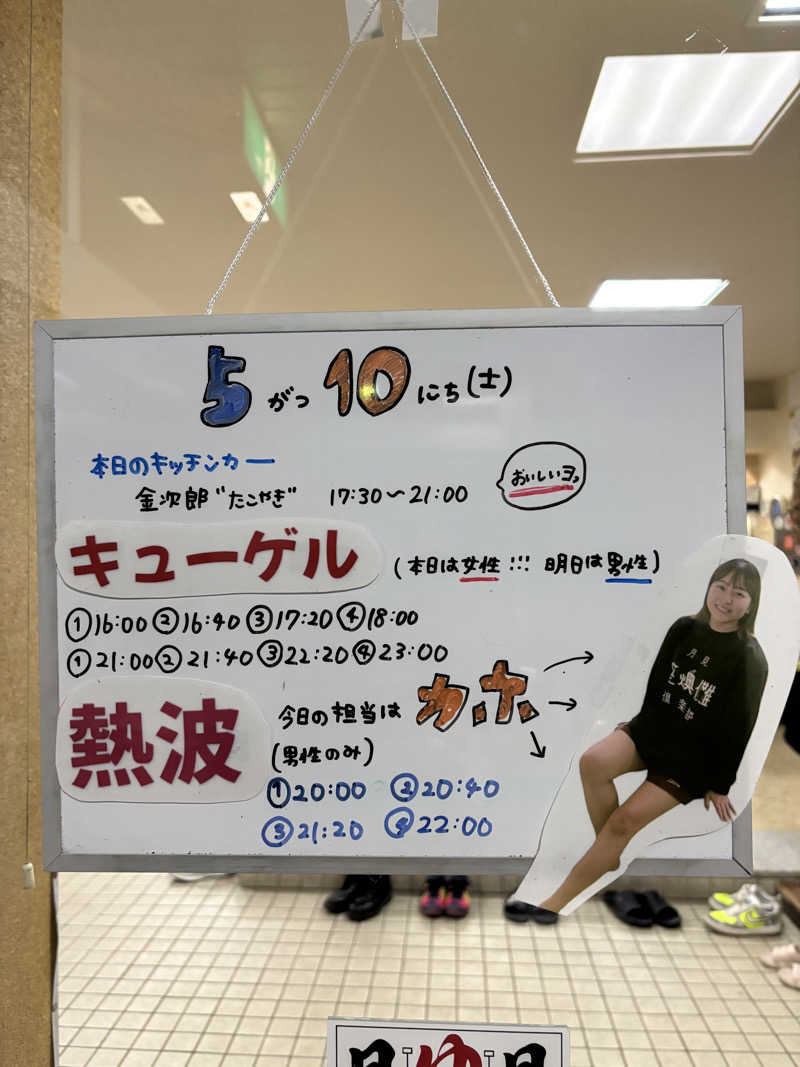 5がつ10にち(土)
本日のキッチンカー
金次郎"たこやき" 17:30〜21:00
おいしいヨ。
キューゲル (本日は女性!!! 明日は男性)
①16:00 ②16:40 ③17:20 ④18:00
①21:00 ② 21:40 ③22:20 ④23:00
熱波 今日の担当は カ.ホ.
(男性のみ)
①20:00 ②20:40
③21:20 ④22:00
月見
倶楽部